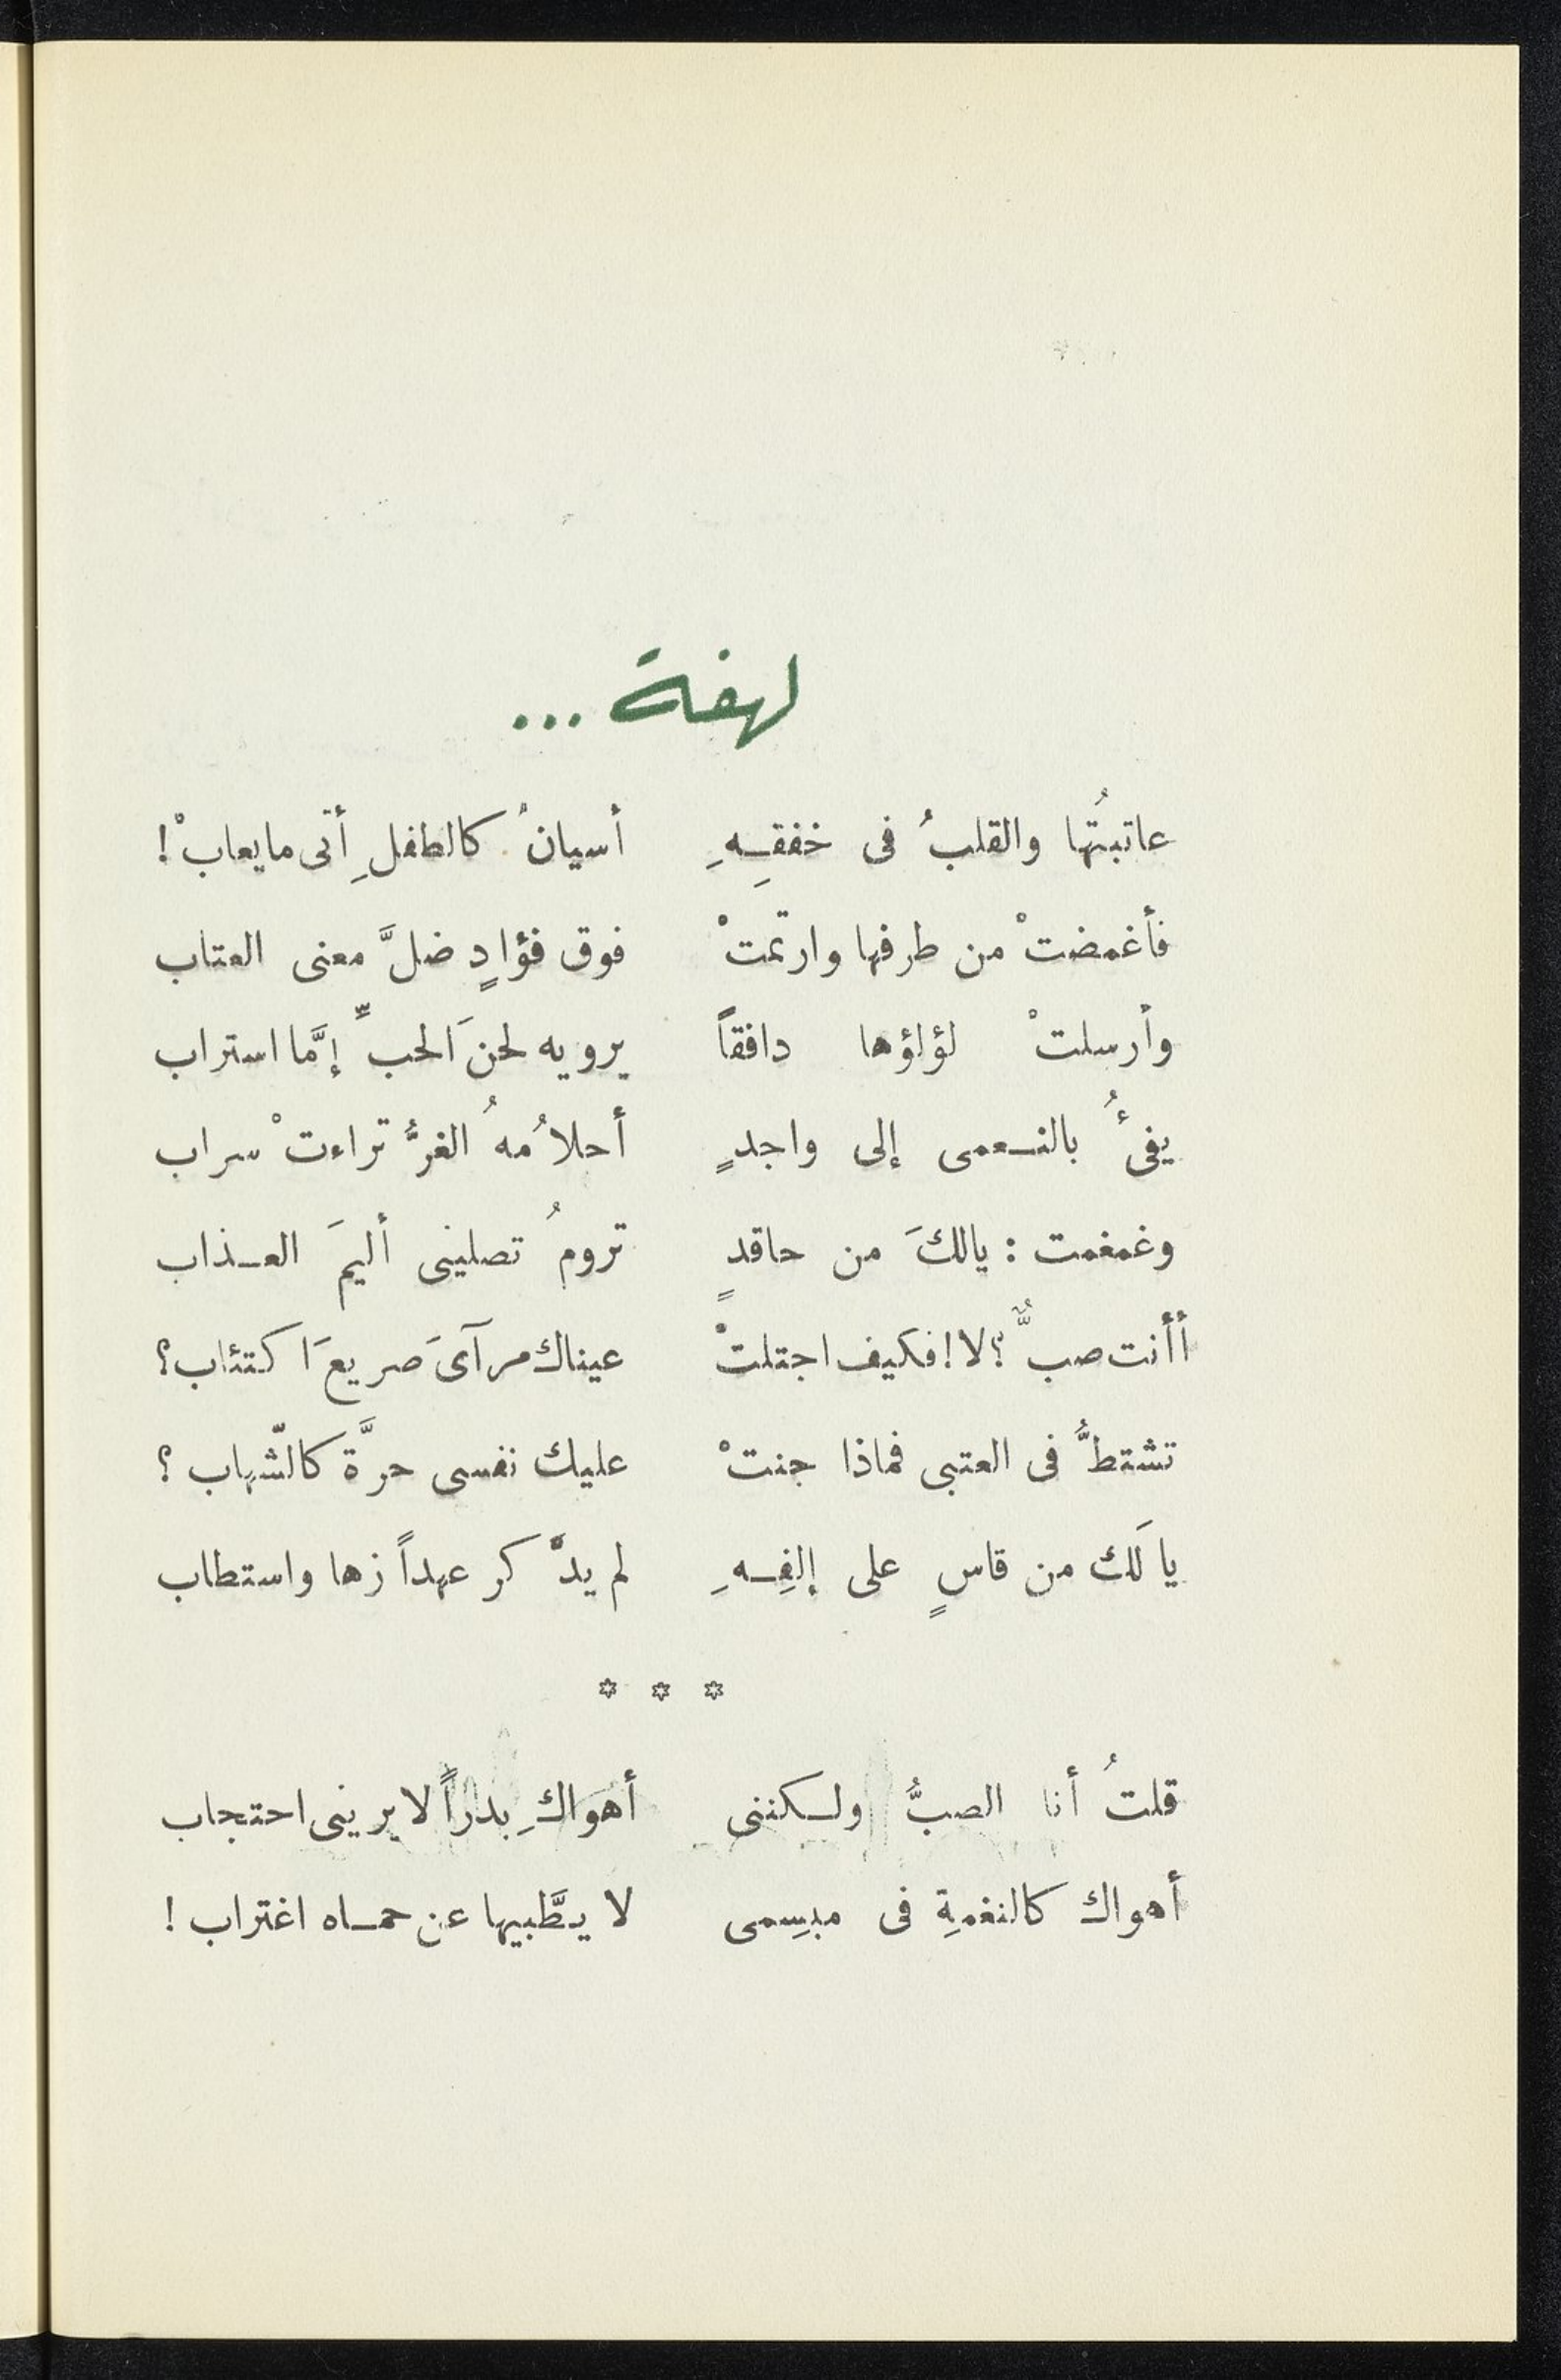 لهفة ...
عاتبتُها والقلبُ فى خفقِهِ أسيانُ كالطفلِ أتى مايعابْ!
فأغمضتْ من طرفها وارتمتْ فوق فؤادٍ ضلَّ معنى العتاب
وأرسلتْ لؤلؤها دافقاً يرويه لحنَ الحبِّ إمَّا استراب
يفىءُ بالنعمى إلى واجدٍ أحلامُهُ الغرُّ تراءتْ سراب
وغمغمت : يالكَ من حاقدٍ ترومُ تصلينى أليمَ العذاب
أأنت صبٌّ ؟ لا ! فكيف اجتلتْ عيناك مرآىَ صريعَ اكتئاب؟
تشتطُّ فى العتبى فماذا جنتْ عليك نفسى حرَّة كالشّهاب ؟
يا لَك من قاسٍ على إلفِهِ لم يدَّكر عهداً زها واستطاب
* * *
قلتُ أنا الصبُّ ولكننى أهواكِ بدراً لا يرينى احتجاب
أهواك كالنغمةِ فى مبسِمى لا يطَّبيها عن حماه اغتراب !